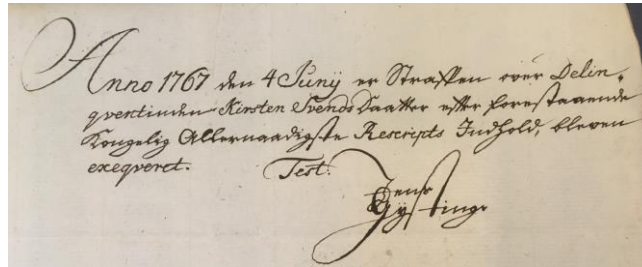 Anno 1767 den 4 Junÿ er Straffen over Delin-
qventinden Kirsten Svends Daatter efter forestaaende
Kongelig Allernaadigste Rescripts Indhold, bleven
exeqveret. Test.
Jens